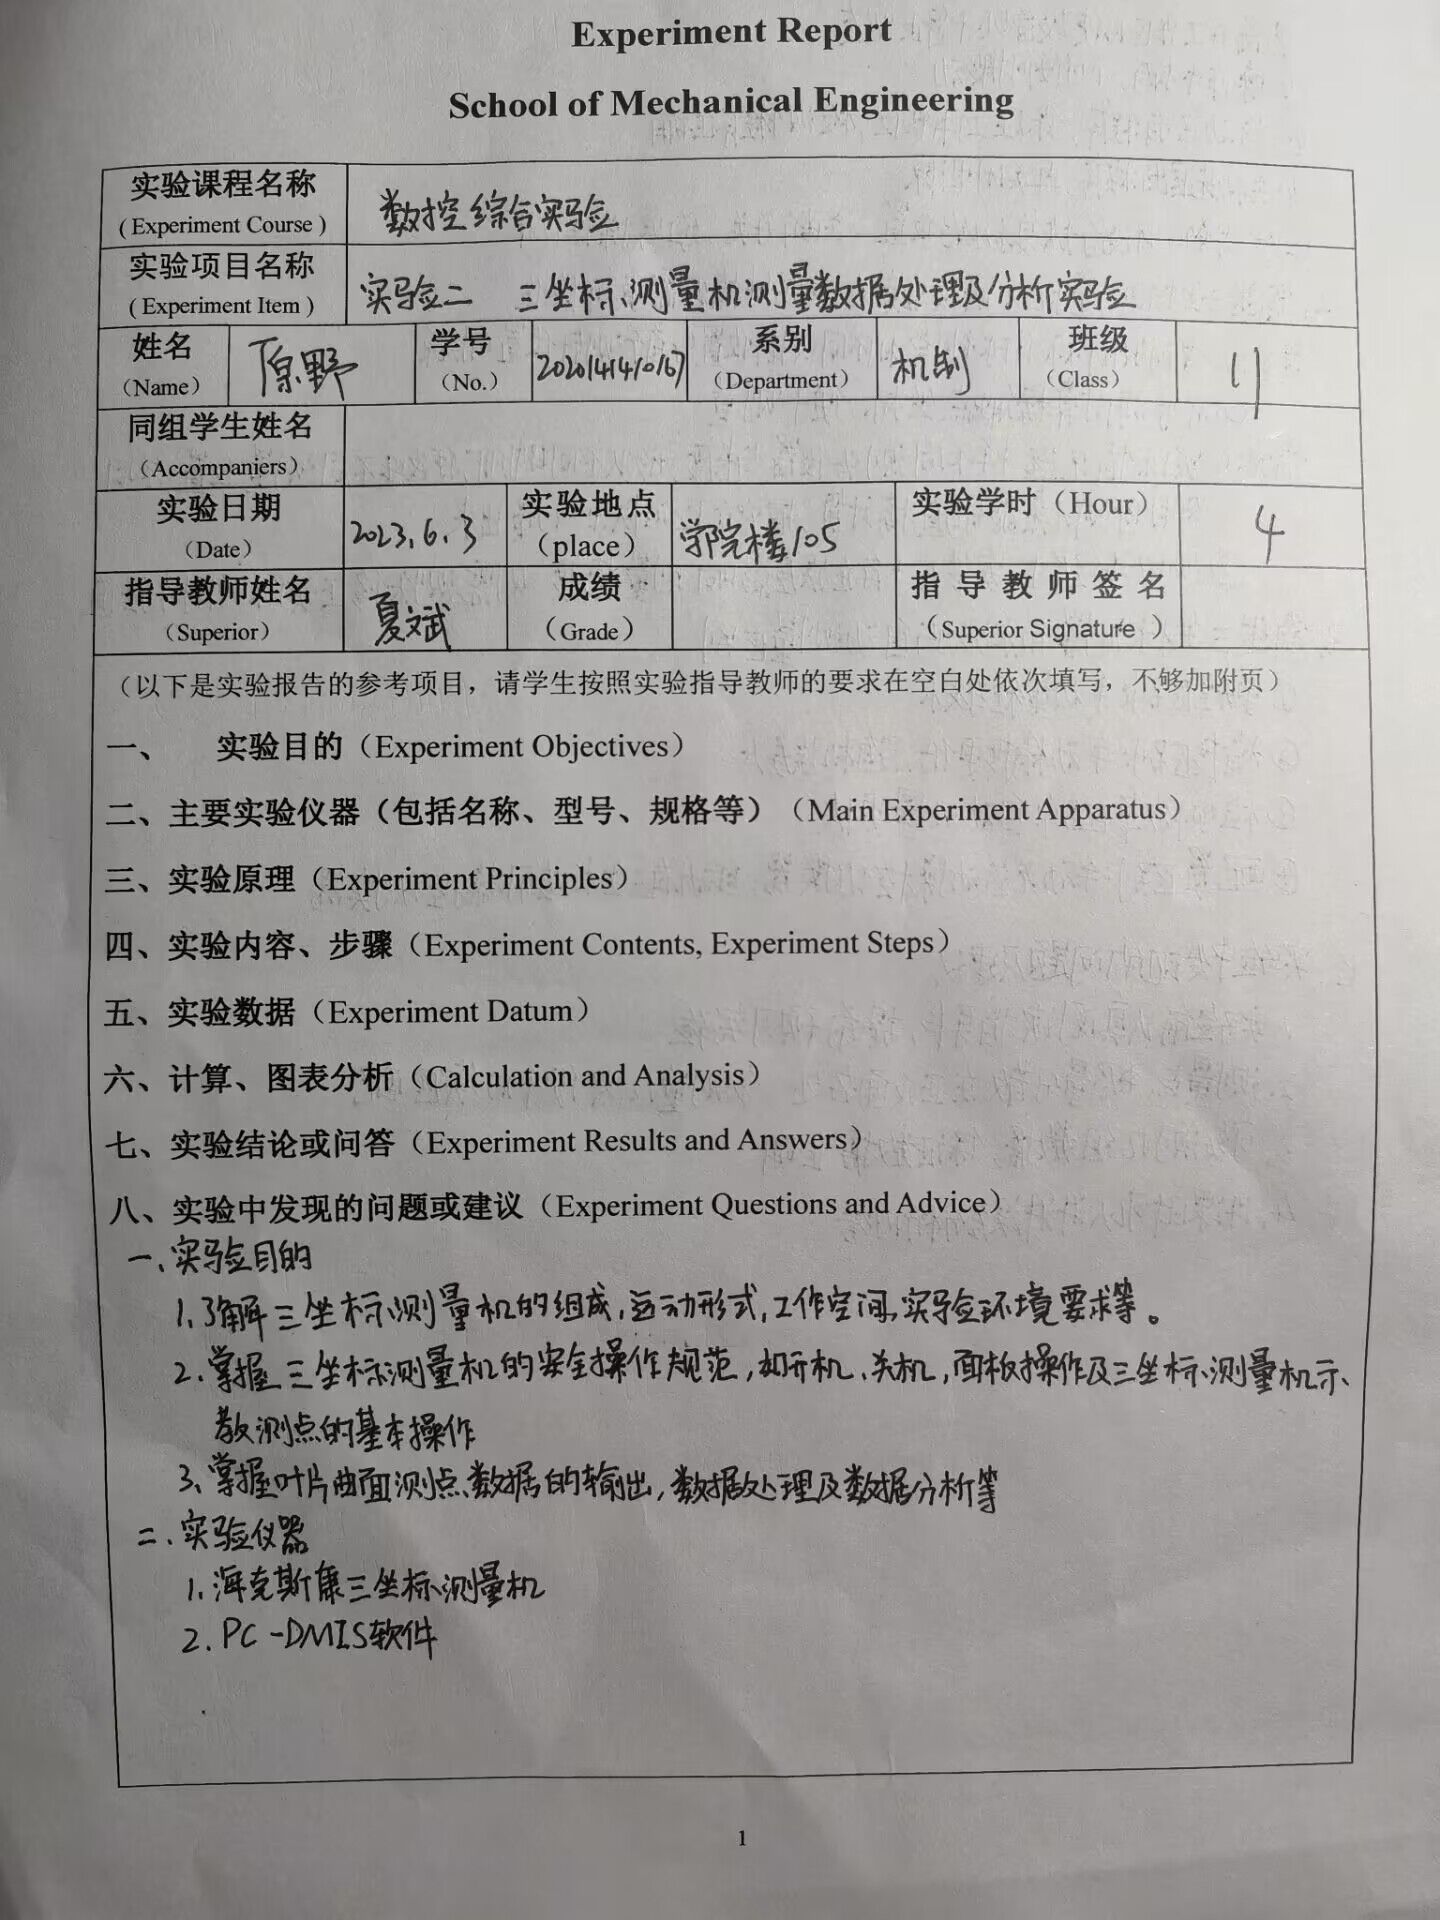 Experiment Report
School of Mechanical Engineering
实验课程名称
(Experiment Course)
数控综合实验
实验项目名称
(Experiment Item)
实验二 三坐标测量机测量数据处理及分析实验
姓名
（Name）
原野
学号
（No.）
2020141410167
系别
（Department）
机制
班级
（Class）
11
同组学生姓名
（Accompaniers）
实验日期
（Date）
2023.6.3
实验地点
（place）
学院楼105
实验学时（Hour）
4
指导教师姓名
（Superior）
夏文斌
成绩
（Grade）
指导教师签名
（Superior Signature ）
（以下是实验报告的参考项目，请学生按照实验指导教师的要求在空白处依次填写，不够加附页）
一、 实验目的（Experiment Objectives）
二、主要实验仪器（包括名称、型号、规格等）（Main Experiment Apparatus）
三、实验原理（Experiment Principles）
四、实验内容、步骤（Experiment Contents, Experiment Steps）
五、实验数据（Experiment Datum）
六、计算、图表分析（Calculation and Analysis）
七、实验结论或问答（Experiment Results and Answers）
八、实验中发现的问题或建议（Experiment Questions and Advice）
一、实验目的
1.了解三坐标测量机的组成,运动形式,工作空间,实验环境要求等。
2.掌握三坐标测量机的安全操作规范,如开机、关机,面板操作及三坐标测量机示
教测点的基本操作
3.掌握叶片曲面测点数据的输出,数据处理及数据分析等
二、实验仪器
1.海克斯康三坐标测量机
2.PC-DMIS软件
1